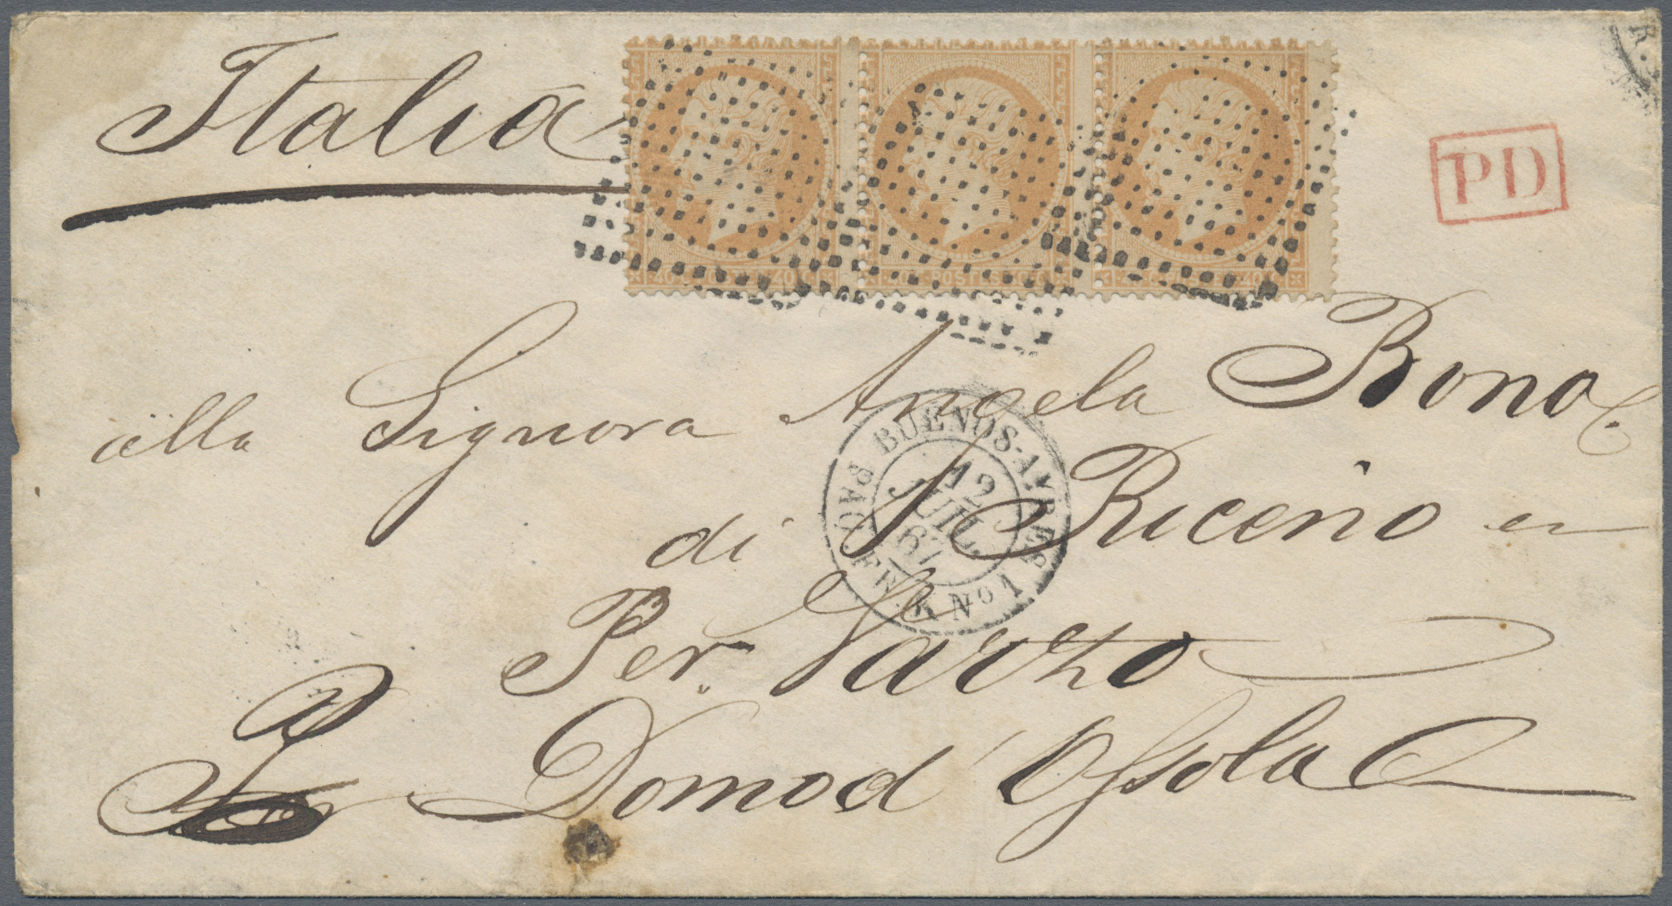 Italia
PD
alla Signora Angela Bona
di Riceno
Per Varzo
Per Domod'Ossola
BUENOS-AYRES
12
JUIL.
67
PAQ. FR. K No 1
40
40
40
R.